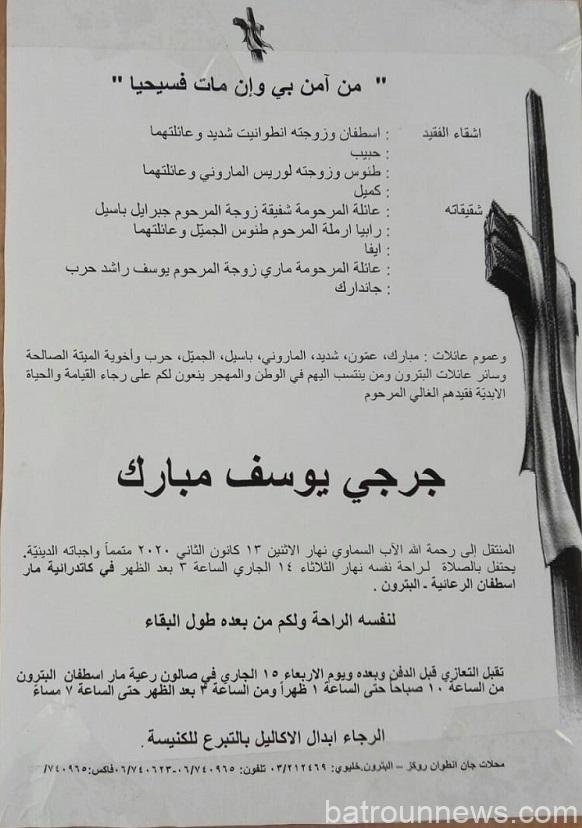 " من آمن بي وإن مات فسيحيا "
اشقاء الفقيد : اسطفان وزوجته انطوانيت شديد وعائلتهما
: حبيب
: طنوس وزوجته لوريس الماروني وعائلتهما
: كميل
شقيقاته : عائلة المرحومة شفيقة زوجة المرحوم جبرايل باسيل
: رابيا ارملة المرحوم طنوس الجميّل وعائلتهما
: ايفا
: عائلة المرحومة ماري زوجة المرحوم يوسف راشد حرب
: جاندارك
وعموم عائلات : مبارك، عقون، شديد، الماروني، باسيل، الجميّل، حرب وأخوية الميتة الصالحة
وسائر عائلات البترون ومن ينتسب اليهم في الوطن والمهجر ينعون لكم على رجاء القيامة والحياة
الابديّة فقيدهم الغالي المرحوم
جرجي يوسف مبارك
المنتقل إلى رحمة الله الآب السماوي نهار الاثنين ١٣ كانون الثاني ٢٠٢٠ متمماً واجباته الدينيّة.
يحتفل بالصلاة لـراحة نفسه نهار الثلاثاء ١٤ الجاري الساعة ٣ بعد الظهر في كاتدرائية مار
اسطفان الرعائية ـ البترون .
لنفسه الراحة ولكم من بعده طول البقاء
تقبل التعازي قبل الدفن وبعده ويوم الاربعاء ١٥ الجاري في صالون رعية مار اسطفان البترون
من الساعة ١٠ صباحاً حتى الساعة ١ ظهراً ومن الساعة ٣ بعد الظهر حتى الساعة ٧ مساءً
الرجاء ابدال الاكاليل بالتبرع للكنيسة .
محلات جان انطوان روكز – البترون.خليوي: ٠٣/٢١٢٤٦٩ تلفون: ٠٦/٧٤٠٩٦٥-٠٦/٧٤٠٦٢٣فاكس:٧٤٠٩٦٥/
batrounnews.com